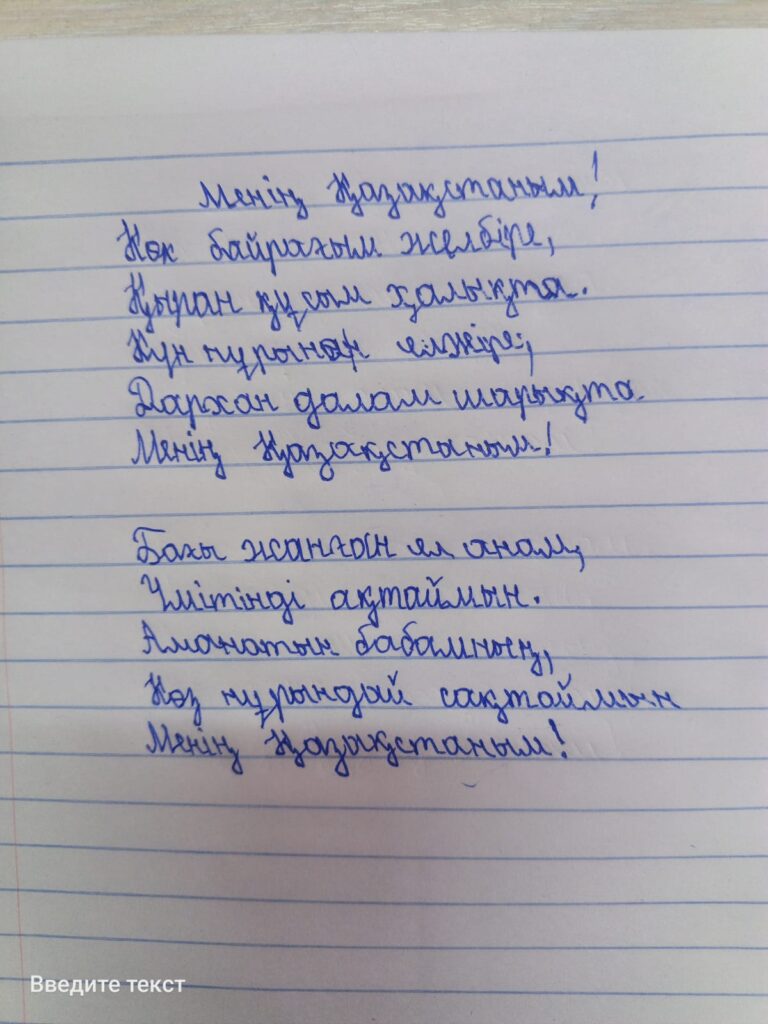 Менің Қазақстаным!
Көк байрағым желбіре,
Қыран құсым қалықта.
Күн нұрынан елжіре,
Дархан далам шарықта.
Менің Қазақстаным!
Бағы жанған ел анам,
Үмітіңді ақтаймын.
Аманатын бабамның,
Көз нұрындай сақтаймын
Менің Қазақстаным!
Введите текст